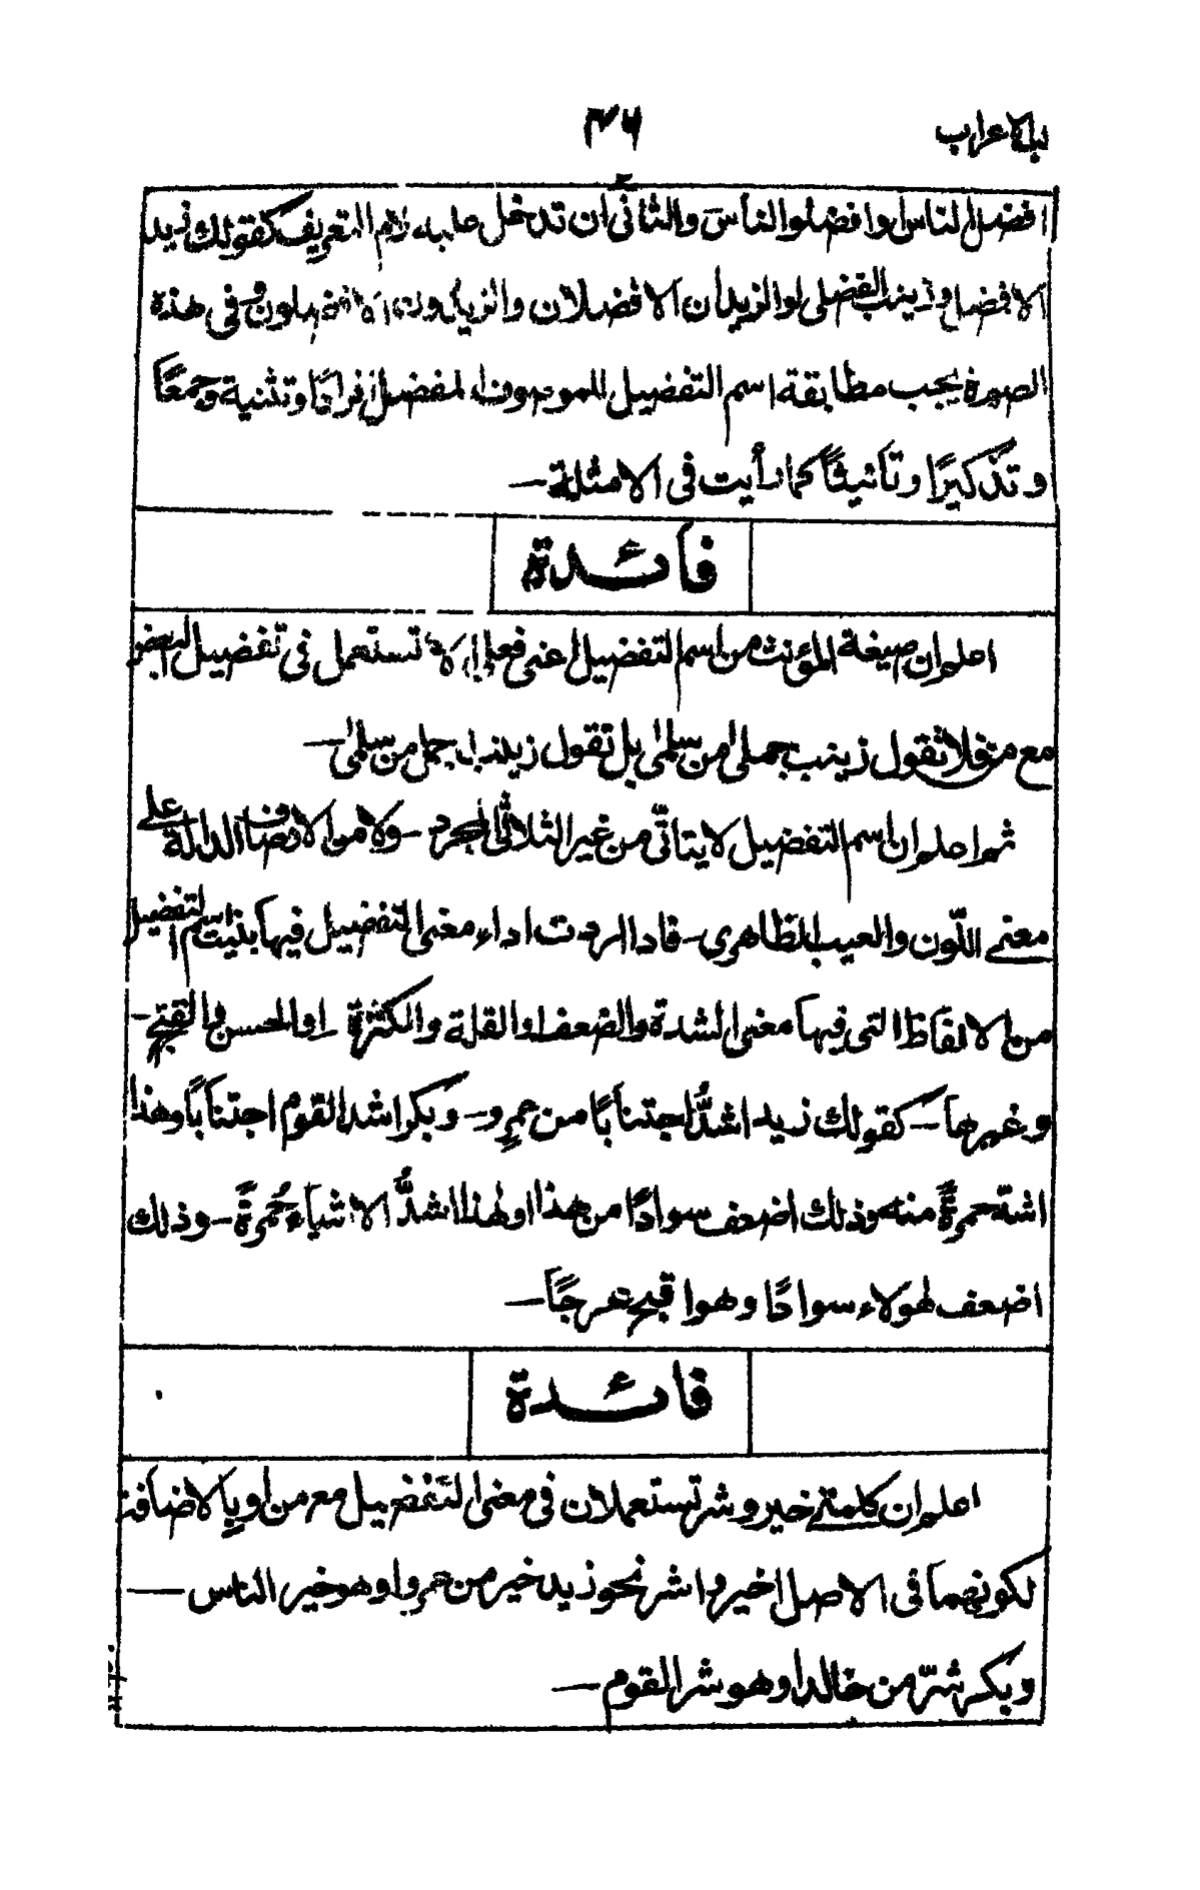 لب الاعراب
۴۶
افضلا الناس وافضلوا الناس والثانى ان تدخل عليه لام التعريف كقولك زيد
الافضل وزينب الفضلى اوالزيدان الافضلان والزيدون الافضلون وفى هذة
الصورة يجب مطابقة اسم التفضيل للموصوف المفضل افرادًا وتثنية وجمعًا
وتذكيرًا وتأنيثًا كما رأيت فى الامثلة —
فائدة
اعلم ان صيغة المؤنث من اسم التفضيل اعنى فعلى لا تستعمل فى تفضيل البعض
مع من فلا تقول زينب جملى من سلمىٰ بل تقول زينب اجمل من سلمىٰ —
ثم اعلم ان اسم التفضيل لا يتاتّى من غير الثلاثى المجرد — ولا من الاوصاف الدالة على
معنى اللّون والعيب الظاهرى — فاذا اردت اداء معنى التفضيل فيها بنيت اسم التفضيل
من الالفاظ التى فيها معنى الشدة والضعف او القلة والكثرة اوالحسن والقبح —
وغيرها — كقولك زيد اشدُّ اجتنابًا من عمرٍو — وبكر اشد القوم اجتنابًا وهذا
اشدّ حمرةً منه وذلك اضعف سوادًا من هذا او لهذا اشدُّ الاشياء حُمرةً — وذلك
اضعف لهولاء سوادًا وهو اقبح عرجًا —
فائدة
اعلم ان كلمتى خير وشر تستعملان فى معنى التفضيل مع من او بالاضافة
لكونهما فى الاصل اخير واشر نحو زيد خير من عمرو او هو خير الناس —
وبكر شرّ من خالد او هو شر القوم —